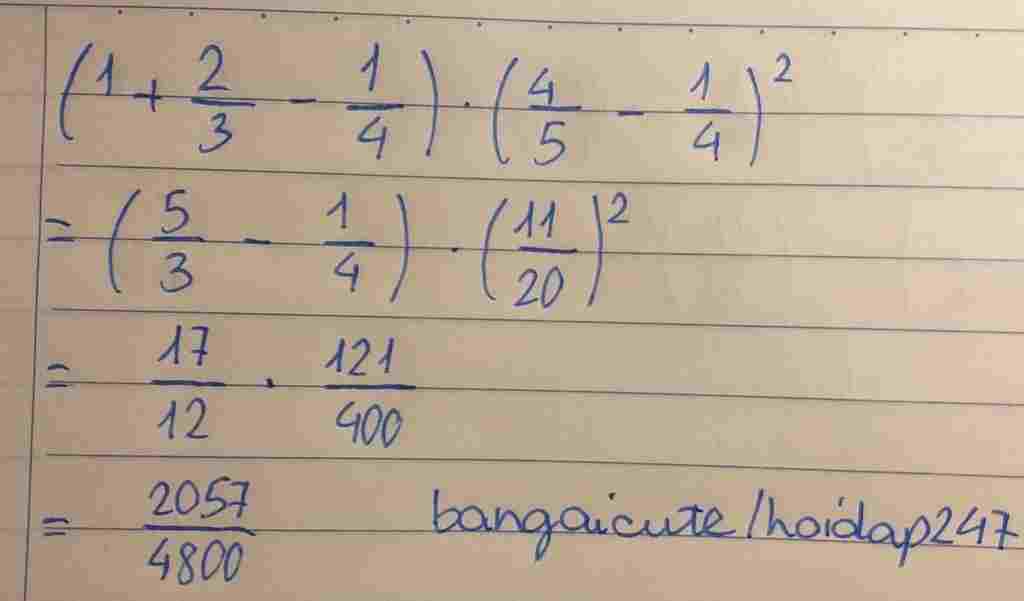 (1 + 2/3 - 1/4) · (4/5 - 1/4)²
= (5/3 - 1/4) · (11/20)²
= 17/12 · 121/400
= 2057/4800 bangaicute/hoidap247